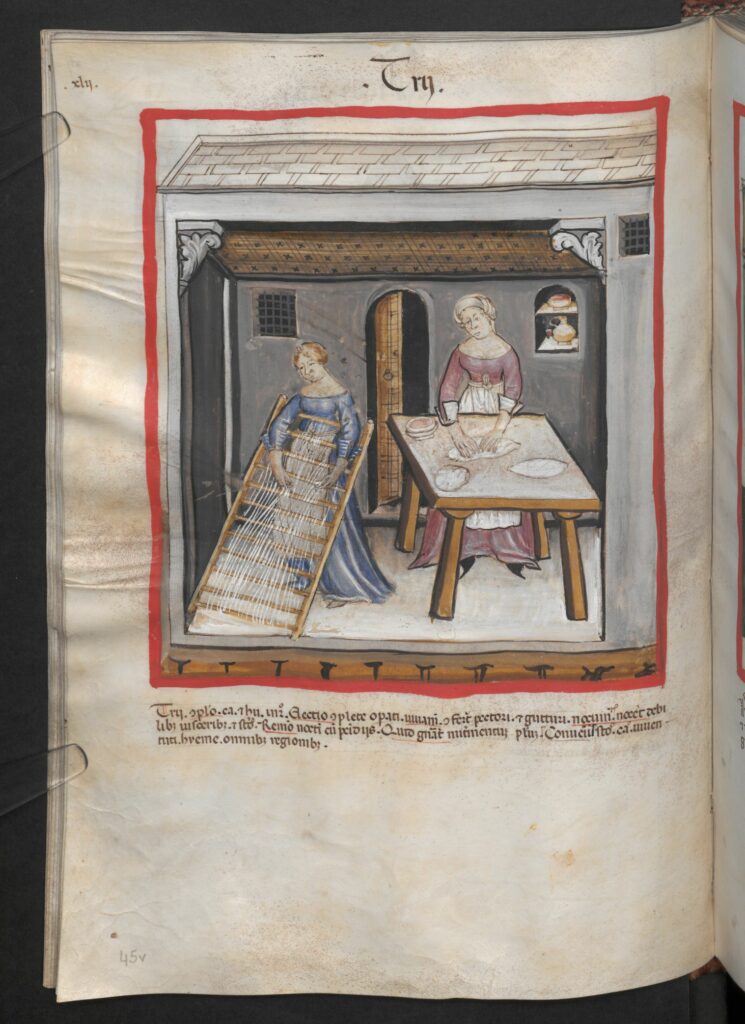 .xlij.
. Trij.
Trij. ꝯplo. ca. ⁊ hu. in 2°. Electio ꝯplete opati. iuuam̃. ꝯfert pectori. ⁊ gutturi. nocum̃. nocet debi
libꝰ uisceribꝰ. ⁊ sto. Remo nocti cũ penidijs. Quid gñat nutrimentũ plim̃. Conueniũt ca. iuuen
tuti. hyeme. omnibꝰ regionibꝰ.
45v